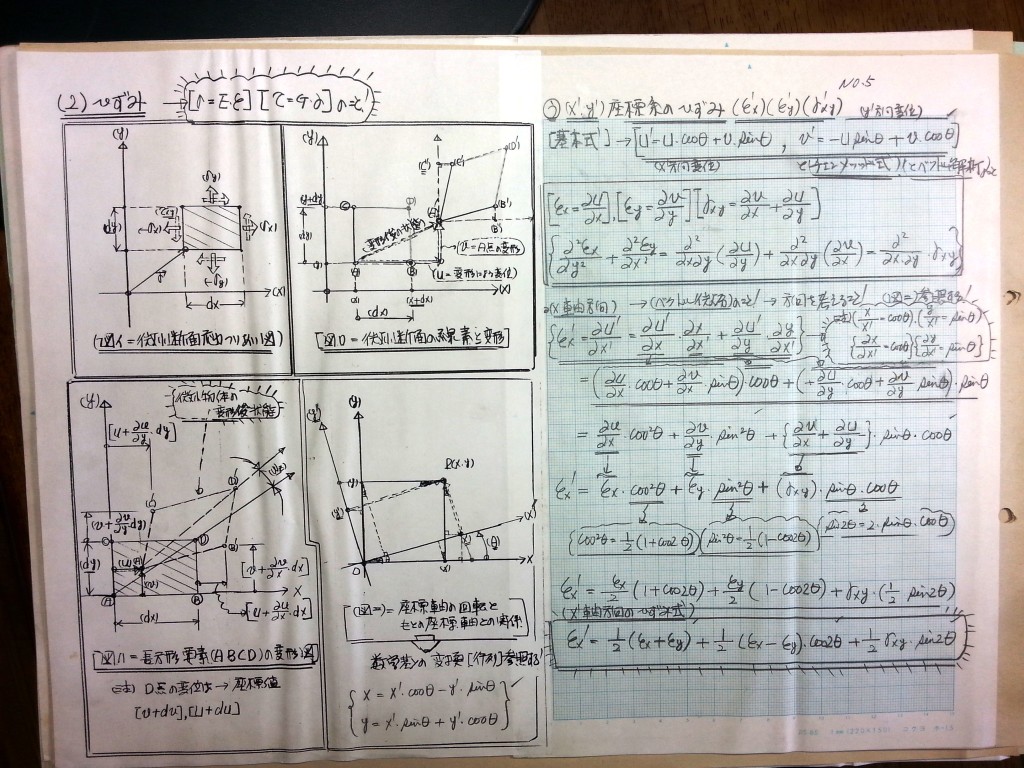 (2) ひずみ [σ=E・ε] [τ=G・γ] のこと!
(y)
(σy)
(dy)
(σx)
(σx)
(σy)
dx
(x)
(図イ=微小断面応力つり合い図)
(y)
(C')
(D')
y+dy
C
D
dy
変形後の状態
(B')
(v=A点の変形)
y
A
B
(u=変形による変位)
(x)
(x+dx)
(x)
(dx)
[図ロ=微小断面の系要素と変形]
(y)
微小物体の
変形後状態
[u+∂u/∂y・dy]
(v+∂v/∂y・dy)
(dy)
[v+∂v/∂x・dx]
x
[u+∂u/∂x・dx]
(dx)
[図ハ=長方形要素(ABCD)の変形図]
注) D点の変位は→座標値
[v+dv],[u+du]
(y')
(y)
(y)
P(x・y)
(y')
(x')
(x')
θ
O
(x)
x
[図ニ]=座標軸の回転と
もとの座標軸との関係
数学第1の変換[行列]参照!
{ x = x'・cosθ − y'・sinθ
y = x'・sinθ + y'・cosθ } ✓
NO.5
③ (x',y')座標系のひずみ (ε'x)(ε'y)(γ'xy) (y'方向変位)
[基本式] → [u'=u・cosθ+v・sinθ, v'=−u・sinθ+v・cosθ]
(x'方向変位)
[εx=∂u/∂x],[εy=∂v/∂y][γxy=∂v/∂x+∂u/∂y]
{∂²εx/∂y²+∂²εy/∂x²=∂²/∂x∂y(∂u/∂y)+∂²/∂x∂y(∂v/∂x)=∂²/∂x∂y・γxy}
(x'軸方向) → (ベクトル微分)のこと! → 方向を考えること! (図ニ)参照!
{ε'x=∂u'/∂x'=∂u'/∂x・∂x/∂x'+∂u'/∂y・∂y/∂x'}
注) (x/x'=cosθ)・(y/x'=sinθ)
{∂x/∂x'=cosθ}{∂y/∂x'=sinθ}
=(∂u/∂x・cosθ+∂v/∂x・sinθ)cosθ+(+∂u/∂y・cosθ+∂v/∂y・sinθ)・sinθ
=∂u/∂x・cos²θ+∂v/∂y・sin²θ+{∂v/∂x+∂u/∂y}・sinθ・cosθ
ε'x=εx・cos²θ+εy・sin²θ+(γxy)・sinθ・cosθ
{cos²θ=1/2(1+cos2θ)} {sin²θ=1/2(1−cos2θ)} {sin2θ=2・sinθ・cosθ}
ε'x=εx/2(1+cos2θ)+εy/2(1−cos2θ)+γxy・(1/2 sin2θ)
(x'軸方向のひずみ式)
ε'x=1/2(εx+εy)+1/2(εx−εy)・cos2θ+1/2γxy・sin2θ